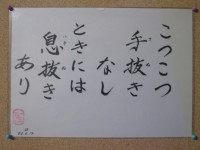 こつこつ
手抜き
なし
ときには
息抜き
あり